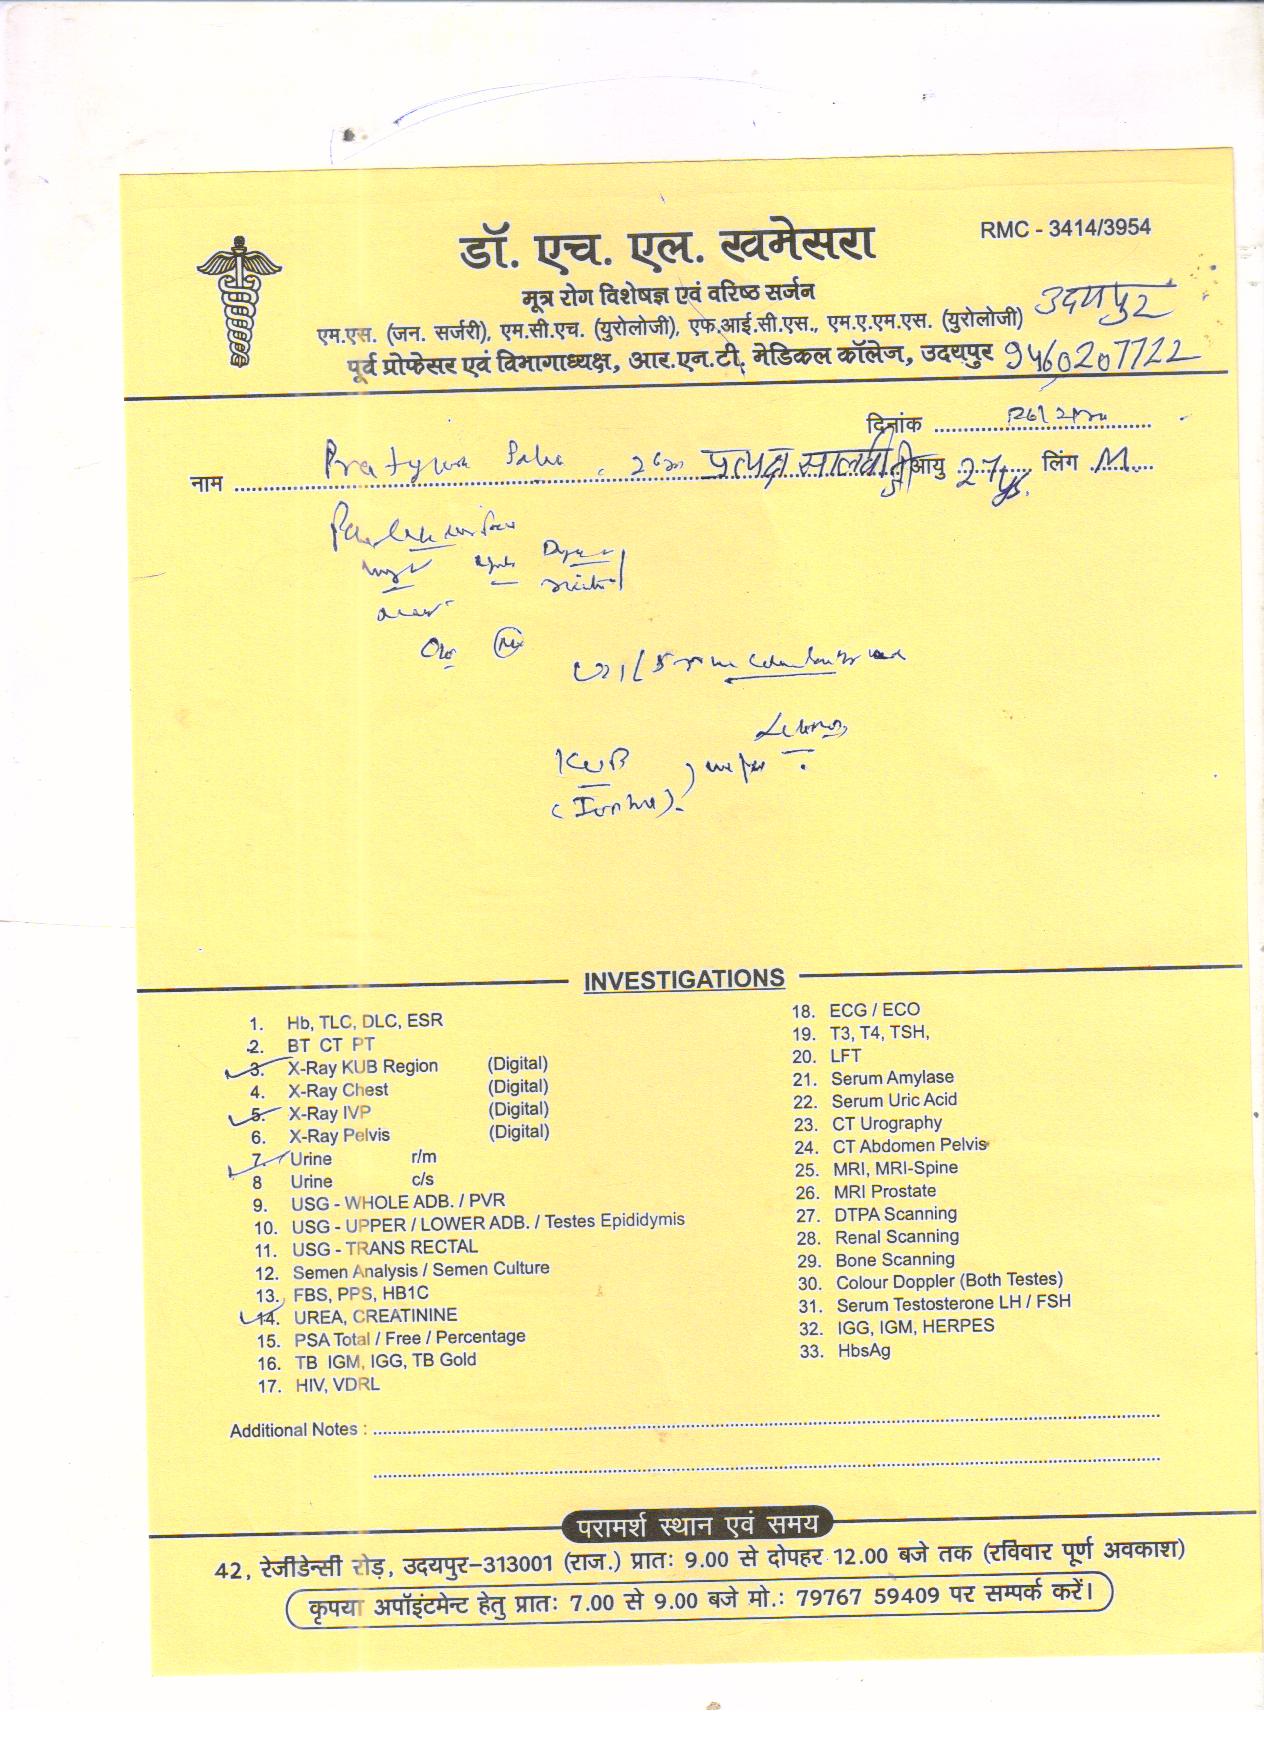 RMC - 3414/3954
डॉ. एच. एल. खमेसरा
मूत्र रोग विशेषज्ञ एवं वरिष्ठ सर्जन
उदयपुर
एम.एस. (जन. सर्जरी), एम.सी.एच. (यूरोलोजी), एफ.आई.सी.एस., एम.ए.एम.एस. (यूरोलोजी)
पूर्व प्रोफेसर एवं विभागाध्यक्ष, आर.एन.टी. मेडिकल कॉलेज, उदयपुर 9460207722
दिनांक
नाम प्रत्यक्ष सालवी जी आयु 27 ys. लिंग M
KUB
INVESTIGATIONS
1. Hb, TLC, DLC, ESR
2. BT CT PT
3. X-Ray KUB Region (Digital)
4. X-Ray Chest (Digital)
5. X-Ray IVP (Digital)
6. X-Ray Pelvis (Digital)
7. Urine r/m
8 Urine c/s
9. USG - WHOLE ADB. / PVR
10. USG - UPPER / LOWER ADB. / Testes Epididymis
11. USG - TRANS RECTAL
12. Semen Analysis / Semen Culture
13. FBS, PPS, HB1C
14. UREA, CREATININE
15. PSA Total / Free / Percentage
16. TB IGM, IGG, TB Gold
17. HIV, VDRL
18. ECG / ECO
19. T3, T4, TSH,
20. LFT
21. Serum Amylase
22. Serum Uric Acid
23. CT Urography
24. CT Abdomen Pelvis
25. MRI, MRI-Spine
26. MRI Prostate
27. DTPA Scanning
28. Renal Scanning
29. Bone Scanning
30. Colour Doppler (Both Testes)
31. Serum Testosterone LH / FSH
32. IGG, IGM, HERPES
33. HbsAg
Additional Notes :
परामर्श स्थान एवं समय
42, रेजीडेन्सी रोड़, उदयपुर–313001 (राज.) प्रातः 9.00 से दोपहर 12.00 बजे तक (रविवार पूर्ण अवकाश)
कृपया अपॉइंटमेन्ट हेतु प्रातः 7.00 से 9.00 बजे मो.: 79767 59409 पर सम्पर्क करें।